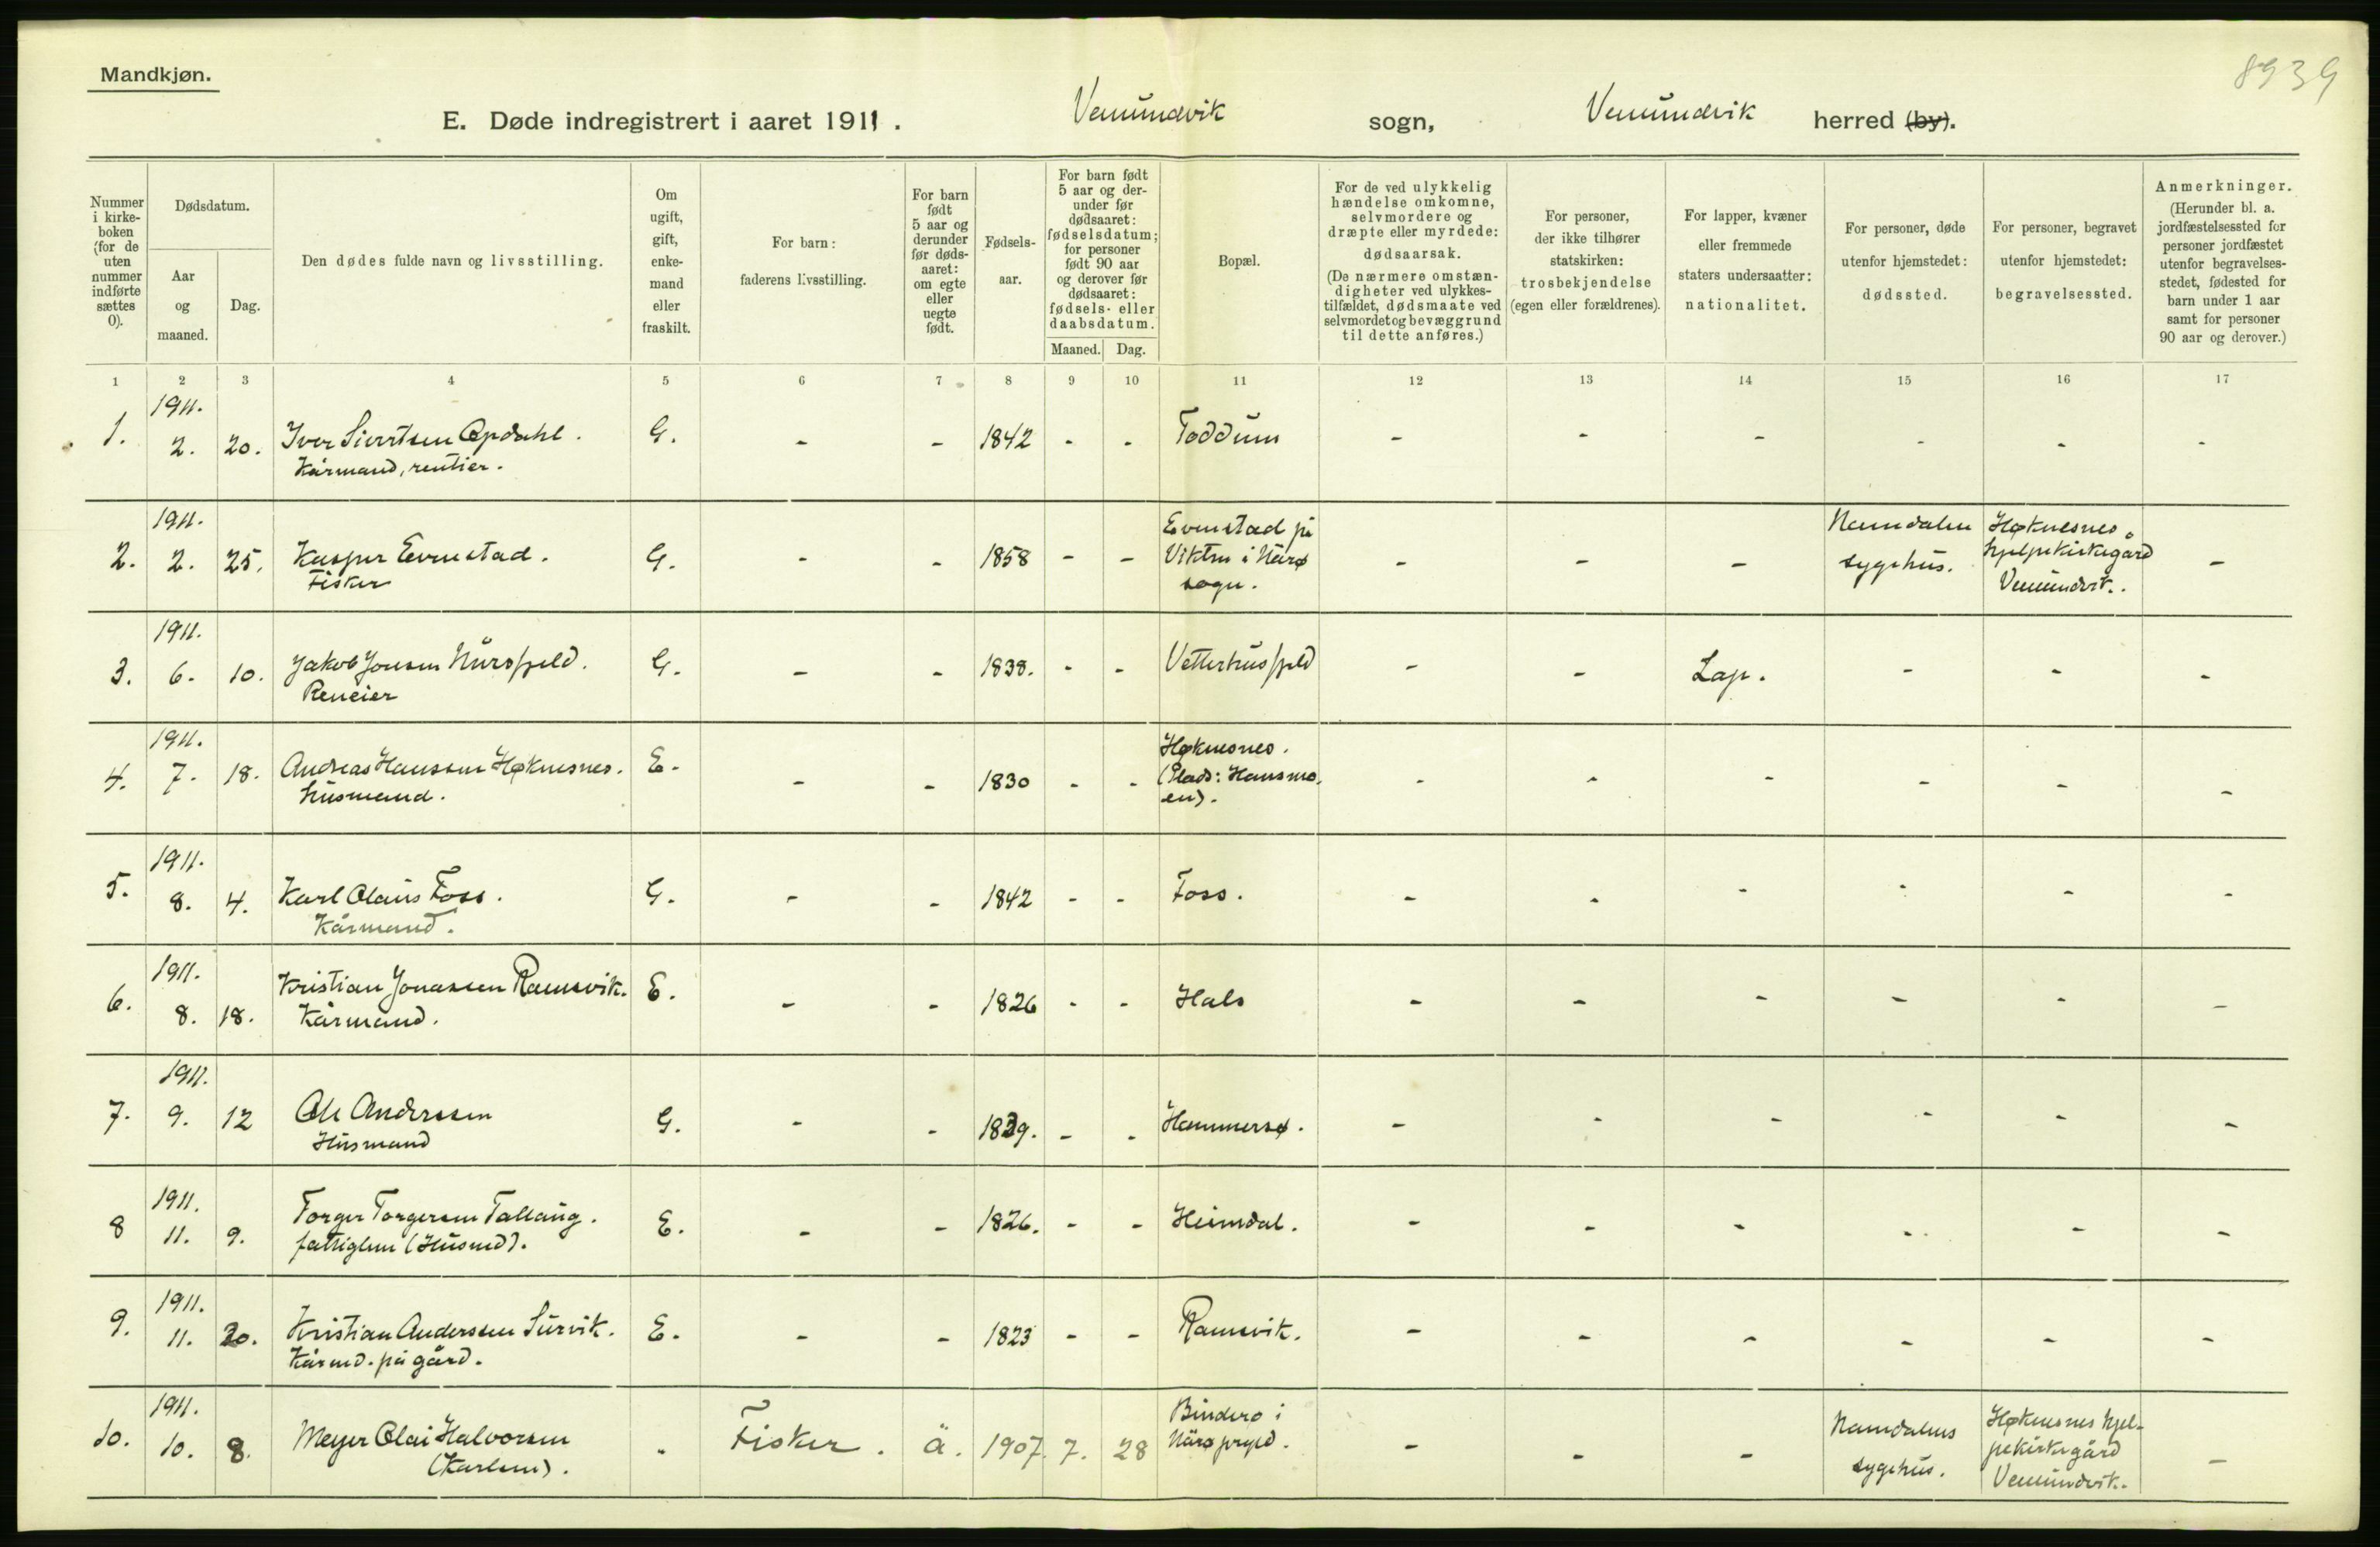 Mandkjøn.
8939
E. Døde indregistrert i aaret 1911. Vemundvik sogn, Vemundvik herred (by).
Nummer i kirke-boken (for de uten nummer indførte sættes 0).
Dødsdatum.
Aar og maaned.
Dag.
Den dødes fulde navn og livsstilling.
Om ugift, gift, enke-mand eller fraskilt.
For barn: faderens livsstilling.
For barn født 5 aar og derunder før døds-aaret: om egte eller uegte født.
Fødsels-aar.
For barn født 5 aar og der-under før dødsaaret: fødselsdatum; for personer født 90 aar og derover før dødsaaret: fødsels- eller daabsdatum.
Maaned. Dag.
Bopæl.
For de ved ulykkelig hændelse omkomne, selvmordere og dræpte eller myrdede: dødsaarsak. (De nærmere omstæn-digheter ved ulykkes-tilfældet, dødsmaate ved selvmordet og bevæggrund til dette anføres.)
For personer, der ikke tilhører statskirken: trosbekjendelse (egen eller forældrenes).
For lapper, kvæner eller fremmede staters undersaatter: nationalitet.
For personer, døde utenfor hjemstedet: dødssted.
For personer, begravet utenfor hjemstedet: begravelsessted.
Anmerkninger. (Herunder bl. a. jordfæstelsessted for personer jordfæstet utenfor begravelses-stedet, fødested for barn under 1 aar samt for personer 90 aar og derover.)
1 2 3 4 5 6 7 8 9 10 11 12 13 14 15 16 17
1911.
1. 2. 20. Iver Sivertsen Opdahl. G. - - 1842 - - Toddum - - - - - -
Kårmand, rentier.
1911.
2. 2. 25. Kasper Evenstad. G. - - 1858 - - Evenstad på Vikten i Nærø sogn. - - - Namdalen sygehus. Høknesnes hjelpekirkegård Vemundvik. -
Fisker
1911.
3. 6. 10. Jakob Jonsen Nursfjeld. G. - - 1838. - - Vetterhusfjeld - - Lap. - - -
Reneier
1911.
4. 7. 18. Andreas Hanssen Høknesnes. E. - - 1830 - - Høknesnes. (Plads: Hansmoen). - - - - - -
husmand.
1911.
5. 8. 4. Karl Olaus Foss. G. - - 1842 - - Foss. - - - - - -
Kårmand.
1911.
6. 8. 18. Kristian Jonassen Ramsvik. E. - - 1826 - - Hals - - - - - -
Kårmand.
1911.
7. 9. 12 Ole Anderssen G. - - 1839. - - Hammersø. - - - - - -
Husmand
1911.
8 11. 9. Torger Torgersen Tallaug. E. - - 1826. - - Heimdal. - - - - - -
fattiglem (Husmd).
1911.
9. 11. 20. Kristian Anderssen Survik. E. - - 1823 - - Ramsvik. - - - - - -
Kårmd. på gård.
1911.
10. 10. 8. Meyer Olai Halvorsen - Fisker. ä. 1907. 7. 28 Bindero i Närø prgjd. - - - Namdalens sygehus. Høknesnes hjelpekirkegård Vemundvik. -
(Karlsen).